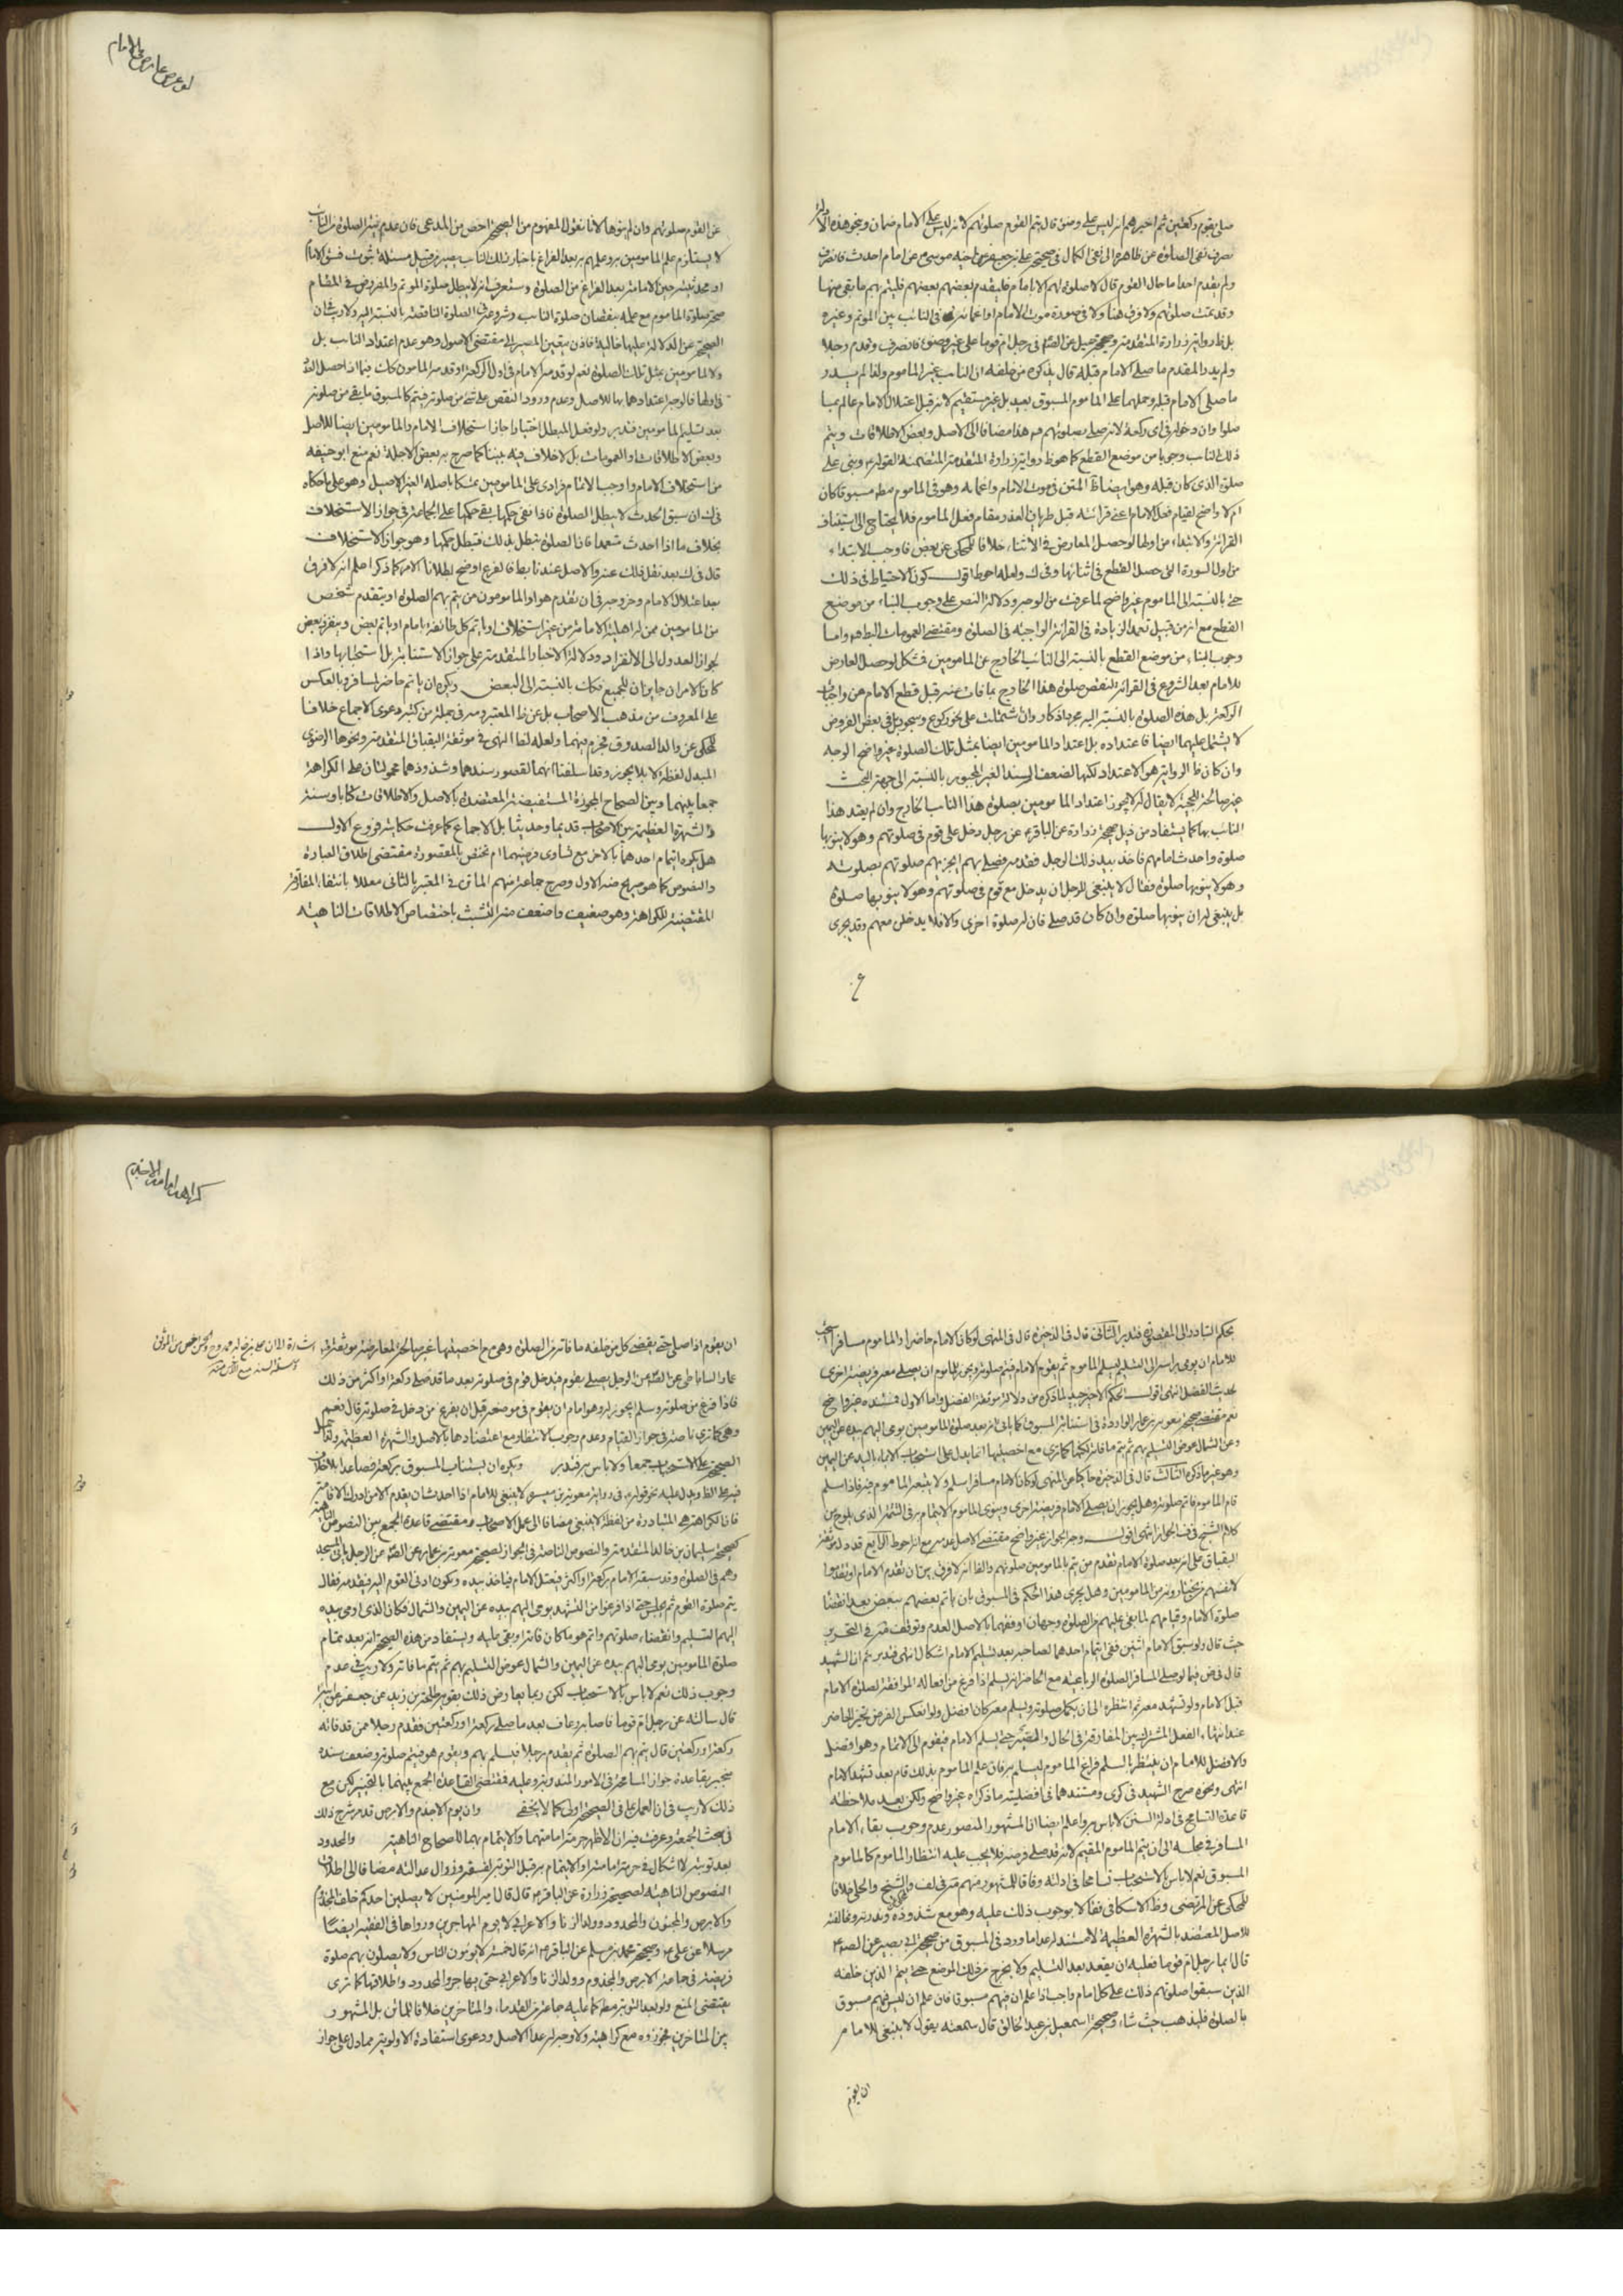 لو عرض عارض للامام
صلى بقوم ركعتين ثم اخبرهم انه ليس على وضوء قال يتم القوم صلوتهم لانه ليس على الامام ضمان ونحو هذه
نصرف نفى الصلوة عن ظاهره الى نفى الكمال في صحيحة على بن جعفر عن اخيه موسى عن امام احدث فانصرف
ولم يقدم احدا ما حال القوم قال لا صلوة لهم الا بامام فليقدم بعضهم بعضهم فليتم بهم ما بقى منها
وقد تمت صلوتهم ولا فرق هنا ولا في صورة موت الامام او اغمائه في النائب بين الموتم وغيره
بل ظ رواية زرارة المتقدمة وصحيحة جميل عن الصادق في رجل ام قوما على غير وضوء فانصرف وقدم رجلا
ولم يدر المقدم ما صلى الامام قبله قال يذكره من خلفه ان النائب غير الماموم ولذا لم يدر
ما صلى الامام قبله وحملهما على الماموم المسبوق بعيد بل غير مستقيم لانه قبل اعتلال الامام عالم بما
صلوا وان دخوله في اى ركعة لانه صلى بصلوتهم هذا مضافا الى الاصل وبعض الاطلاقات ويتم
ذلك النائب وجوبا من موضع القطع كما هو ظ رواية زرارة المتقدمة المتضمنة لقوله ويبنى على
صلوة الذى كان قبله وهو ايضا ظ المتن في موت الامام واغمائه وهو في الماموم مطلقا مسبوقا كان
ام لا واضح لقيام فعل الامام اعنى قرائته قبل طريان العذر مقام فعل الماموم فلا يحتاج الى استيناف
القرائة والابتداء من اولها لو حصل المعارض في الاثناء خلافا للمحكى عن بعض فاوجب الابتداء
من اول السورة التى حصل القطع في اثنائها وفى ك ولعله احوط اقول كون الاحتياط في ذلك
حتى بالنسبة الى الماموم غير واضح لما عرفت من الوجه ودلالة النص على وجوب البناء من موضع
القطع مع انه من قبيل تعمد الزيادة في القرائة الواجبة في الصلوة ومقتضى العمومات البطلان واما
وجوب البناء من موضع القطع بالنسبة الى النائب الخارج عن المامومين فمشكل لو حصل العارض
للامام بعد الشروع في القرائة لنقص صلوة هذا الخارج بما فات عنه قبل قطع الامام من واجبات
الركعة بل هذه الصلوة بالنسبة اليه مجرد اذكار وان اشتملت على نحو ركوع وسجود بل في بعض الفروض
لا يشتمل عليهما ايضا فاعتداده بل اعتداد المامومين ايضا بمثل تلك الصلوة غير واضح الوجه
وان كان ظ الرواية هو الاعتداد لكنها لضعف السند الغير المجبور بالنسبة الى جهة البحث
غير صالحة للحجية لا يقال لم لا يجوز اعتداد المامومين بصلوة هذا النائب الخارج وان لم يعتد هذا
النائب بها كما يستفاد من ذيل صحيحة زرارة عن الباقر عن رجل دخل على قوم في صلوتهم وهو لا ينويها
صلوة واحدث امامهم فاخذ بيد ذلك الرجل فقدمه فصلى بهم ايجزيهم صلوتهم بصلوته
وهو لا ينويها صلوة فقال لا ينبغى للرجل ان يدخل مع قوم في صلوتهم وهو لا ينويها صلوة
بل ينبغى له ان ينويها صلوة وان كان قد صلى فان له صلوة اخرى والا فلا يدخلن معهم وقد يجزى
عن القوم صلوتهم وان لم ينوها لانا نقول المفهوم من الصحيحة اخص من المدعى فان عدم نية الصلوة من النائب
لا يستلزم علم المامومين به وعلمهم به بعد الفراغ باخبار ذلك النائب يصير من قبيل مسئلة ثبوت فسق الامام
او محدثيته حين الامامة بعد الفراغ من الصلوة وستعرف انه لا يبطل صلوة الموتم والمفروض في المقام
صحة صلوة الماموم مع علمه بنقصان صلوة النائب وشروعه في الصلوة الناقصة بالنسبة اليه ولا ريب ان
الصحيحة عن الدلالة عليها خالية فاذن يتعين المصير الى مقتضى الاصول وهو عدم اعتداد النائب بل
ولا المامومين بمثل تلك الصلوة نعم لو قدمه الامام في اول الركعة او قدمه المامون كانت فيما اذا حصل العذر
في اولها فالوجه اعتدادهما بها للاصل وعدم ورود النقص على شئ من صلوته فيتم كالمسبوق ما بقى من صلوته
بعد تسليم المامومين فتدبر ولو فعل المبطل اختيارا جاز استخلاف الامام والمامومين ايضا للاصل
وبعض الاطلاقات والعمومات بل لا خلاف فيه بيننا كما صرح به بعض الاجلة نعم منع ابو حنيفه
من استخلاف الامام واوجب الاتمام فرادى على المامومين تمسكا باصله الغير الاصيل وهو على ما حكاه
في ك ان سبق الحدث لا يبطل الصلوة فاذا بقى حكمها بقى حكمها على الجماعة في جواز الاستخلاف
بخلاف ما اذا احدث متعمدا فان الصلوة تبطل بذلك فتبطل حكمها وهو جواز الاستخلاف
قال في ك بعد نقل ذلك عنه والاصل عندنا بط فالفرع اوضح بطلانا الامر كما ذكر اعلم انه لا فرق
بعد اعتلال الامام وخروجه في ان تقدم هو او المامومون من يتم بهم الصلوة او يتقدم شخص
من المامومين ممن له اهلية الامامة من غير استخلاف او ياتم كل طائفة بامام او ياتم بعض وينفرد بعض
لجواز العدول الى الانفراد ودلالة الاخبار المتقدمة على جواز الاستنابة بل استحبابها واذا
كان الامران جايزان للجميع فكذا بالنسبة الى البعض ويكره ان ياتم حاضر لمسافر وبالعكس
على المعروف من مذهب الاصحاب بل عن ظ المعتبر ومنه في جملة من كتبه دعوى الاجماع خلافا
للمحكى عن والد الصدوق فحرم فيهما ولعله لظ النهى في موثقة البقباق المتقدمة ونحوها الرضوى
المبدل لفظة لا بلا يجوز وقد اسلفنا انهما لقصور سندهما وشذوذهما محمولتان على الكراهة
جمعا بينهما وبين الصحاح المجوزة المستفيضة المعتضدة بالاصل والاطلاقات كتابا وسنة
والشهرة العظيمة بين الاصحاب قديما وحديثا بل الاجماع كما عرفت حكايته فروع الاول
هل يكره ايتمام احدهما بالاخر مع تساوى فرضيهما ام تختص بالمقصورة مقتضى اطلاق العبارة
والنصوص كما هو صريح ضه الاول وصرح جماعة منهم الماتن في المعتبر بالثانى معللا بانتفاء المفارقة
المقتضية للكراهة وهو ضعيف واضعف منه التشبث باختصاص الاطلاقات الناهية
كراهة امامة الاجذم
بحكم التبادر الى المقصورة فتدبر الثانى قال في الذخيرة قال في المنتهى لو كان الامام حاضرا والماموم مسافرا استحب
للامام ان يومى براسه الى التسليم ليسلم الماموم ثم يقوم الامام فيتم صلوته ويجوز للماموم ان يصلى معه فريضة اخرى
لحديث الفضل انتهى اقول الحكم الاخير جيد لما ذكره من دلالة موثقة الفضل واما الاول فمستنده غير واضح
نعم مقتضى صحيحة معوية بن عمار الواردة في استنابة المسبوق كما ياتى انه بعد صلوة المامومين يومى اليهم بيده عن اليمين
وعن الشمال عوض التسليم بهم ثم يتم ما فاته لكنها كما ترى مع اخصيتها انما يدل على استحباب الايماء باليد عن اليمين
وهو غير ما ذكره الثالث قال في الذخيرة حاكيا عن المنتهى لو كان الامام مسافرا سلم ولا يتبعه الماموم فيه فاذا سلم
قام الماموم فاتم صلوته وهل يجوز ان يصلى الامام فريضة اخرى وينوى الماموم الايتمام به في التتمة الذى يلوح من
كلام الشيخ في ف الجواز انتهى اقول وجه الجواز غير واضح مقتضى الاصل عدمه مع انه احوط الرابع قد دل موثقة
البقباق على انه بعد صلوة الامام تقدم من يتم بالمامومين صلوتهم والظ انه لا فرق بين ان تقدم الامام او تقدموا
لانفسهم من يختارونه من المامومين وهل يجرى هذا الحكم في المسبوق بان ياتم بعضهم ببعض بعد انقضاء
صلوة الامام وقيامهم لما بقى عليهم من الصلوة وجهان اوفقهما بالاصل العدم وتوقف فيه في التحرير
حيث قال ولو سبق الامام اثنين ففى ايتمام احدهما لصاحبه بعد تسليم الامام اشكال انتهى فتدبر ثم ان الشهيد
قال في ض فيما لو صلى المسافر الصلوة الرباعية مع الحاضر انه يسلم اذا فرغ من افعاله الموافقة لصلوة الامام
قبل الامام ولو تشهد معه ثم انتظره الى ان يكمل صلوته ويسلم معه كان افضل ولو انعكس الفرض تخير الحاضر
عند انتهاء الفعل المشترك بين المفارقة في الحال والصبر حتى يسلم الامام فيقوم الى الاتمام وهو افضل
والافضل للامام ان ينتظر بالسلم فراغ الماموم ليسلم به فان علم الماموم بذلك قام بعد تشهد الامام
انتهى ونحوه صرح الشهيد في كرى ومستندهما في افضلية ما ذكراه غير واضح ولكن بعد ملاحظة
قاعدة التسامح في ادلة السنن لا باس به واعلم ايضا ان المشهور المنصور عدم وجوب بقاء الامام
المسافر في مجلسه الى ان يتم الماموم المقيم لانه قد صلى فرضه فلا يجب عليه انتظار الماموم كالماموم
المسبوق نعم لا باس بالاستحباب تسامحا في ادلته وفاقا للمشهور منهم في لف والشيخ والحلى خلافا
للمحكى عن المرتضى وظ الاسكافى فقالا بوجوب ذلك عليه وهو مع شذوذه وندرته ومخالفته
للاصل المعتضد بالشهرة العظيمة لا مستند له عدا ما ورد في المسبوق من صحيحة ابى بصير عن الصادق
قال ايما رجل ام قوما فعليه ان يقعد بعد التسليم ولا يخرج من ذلك الموضع حتى يتم الذين خلفه
الذين سبقوا صلوتهم ذلك على كل امام واجب اذا علم ان فيهم مسبوقا فان علم ان ليس فيهم مسبوق
بالصلوة فليذهب حيث شاء وصحيحة اسمعيل بن عبد الخالق قال سمعته يقول لا ينبغى للامام
ان يقوم
ان يقوم اذا صلى حتى يقضى كل من خلفه ما فاته من الصلوة وهو مع اخصيتهما غير صالحة لمعارضة موثقة
عمار الساباطى عن الصادق عن الرجل يصلى بقوم فيدخل قوم في صلوته بعد ما قد صلى ركعة او اكثر من ذلك
فاذا فرغ من صلوته وسلم ايجوز له وهو امام ان يقوم من موضعه قبل ان يفرغ من دخل في صلوته قال نعم
وهى كما ترى ناصة في جواز القيام وعدم وجوب الانتظار مع اعتضادها بالاصل والشهرة العظيمة
الصحيحة على الاستحباب جمعا ولا باس به فتدبر ويكره ان يستناب المسبوق بركعة فصاعدا بلا خلاف
فيه على الظ ويدل عليه نحو قوله في رواية معوية بن ميسرة لا ينبغى للامام اذا احدث ان يقدم الا من ادرك الاقامة
فان الكراهة هى المتبادرة من لفظة لا ينبغى مضافا الى عمل الاصحاب ومقتضى قاعدة الجمع بين النصوص الناهية
كصحيحة سليمان بن خالد المتقدمة والنصوص الناصة في الجواز لصحيحة معوية بن عمار عن الصادق عن الرجل ياتى المسجد
وهم في الصلوة وقد سبقه الامام بركعة او اكثر فيعتل الامام فياخذ بيده ويكون ادنى القوم اليه فيقدمه فقال
يتم صلوة القوم ثم يجلس حتى اذا فرغوا من التشهد يومى اليهم بيده عن اليمين والشمال فكان الذى اومى بيده
اليهم التسليم وانقضاء صلوتهم واتم هو ما كان فاته او بقى عليه ويستفاد من هذه الصحيحة انه بعد تمام
صلوة المامومين يومى اليهم بيده عن اليمين والشمال عوض التسليم بهم ثم يتم ما فاته ولا ريب في عدم
وجوب ذلك نعم لا باس بالاستحباب لكن ربما يعارض ذلك بقوية طلحة بن زيد عن جعفر عن ابيه
قال سالته عن رجل ام قوما فاصابه رعاف بعد ما صلى ركعة او ركعتين فقدم رجلا ممن قد فاته
ركعة او ركعتين قال يتم بهم الصلوة ثم يقدم رجلا فيسلم بهم ويقوم هو فيتم صلوته وضعف سنده
منجبر بقاعدة جواز المسامحة في الامور المندوبة وعليه فمقتضى القاعدة الجمع بينهما بالتخيير لكن مع
ذلك لا ريب في ان العمل على ما في الصحيحة اولى كما لا يخفى وان يوم الاجذم والابرص قد مر شرح ذلك
في بحث الجمعة وعرفت فيه ان الاظهر حرمة امامتهما والايتمام بهما للصحاح الناهية والمحدود
بعد توبته لا اشكال في حرمة امامته او الايتمام به قبل التوبة لفسقه وزوال عدالته مضافا الى اطلاق
النصوص الناهية لصحيحة زرارة عن الباقر قال قال امير المومنين لا يصلين احدكم خلف المجذوم
والابرص والمجنون والمحدود وولد الزنا والاعرابى لا يوم المهاجرين ورواها في الفقيه ايضا
مرسلا عن على وصحيحة محمد بن مسلم عن الباقر انه قال خمسة لا يومون الناس ولا يصلون بهم صلوة
فريضة في جماعة الابرص والمجذوم وولد الزنا والاعرابى حتى يهاجر والمحدود واطلاقها كما ترى
يقتضى المنع ولو بعد التوبة مطلقا كما عليه جماعة من القدماء والمتاخرين خلافا للماتن بل المشهور
بين المتاخرين فجوزوه مع كراهية ولا وجه له عدا الاصل ودعوى استفادة الاولوية مما دل على جواز